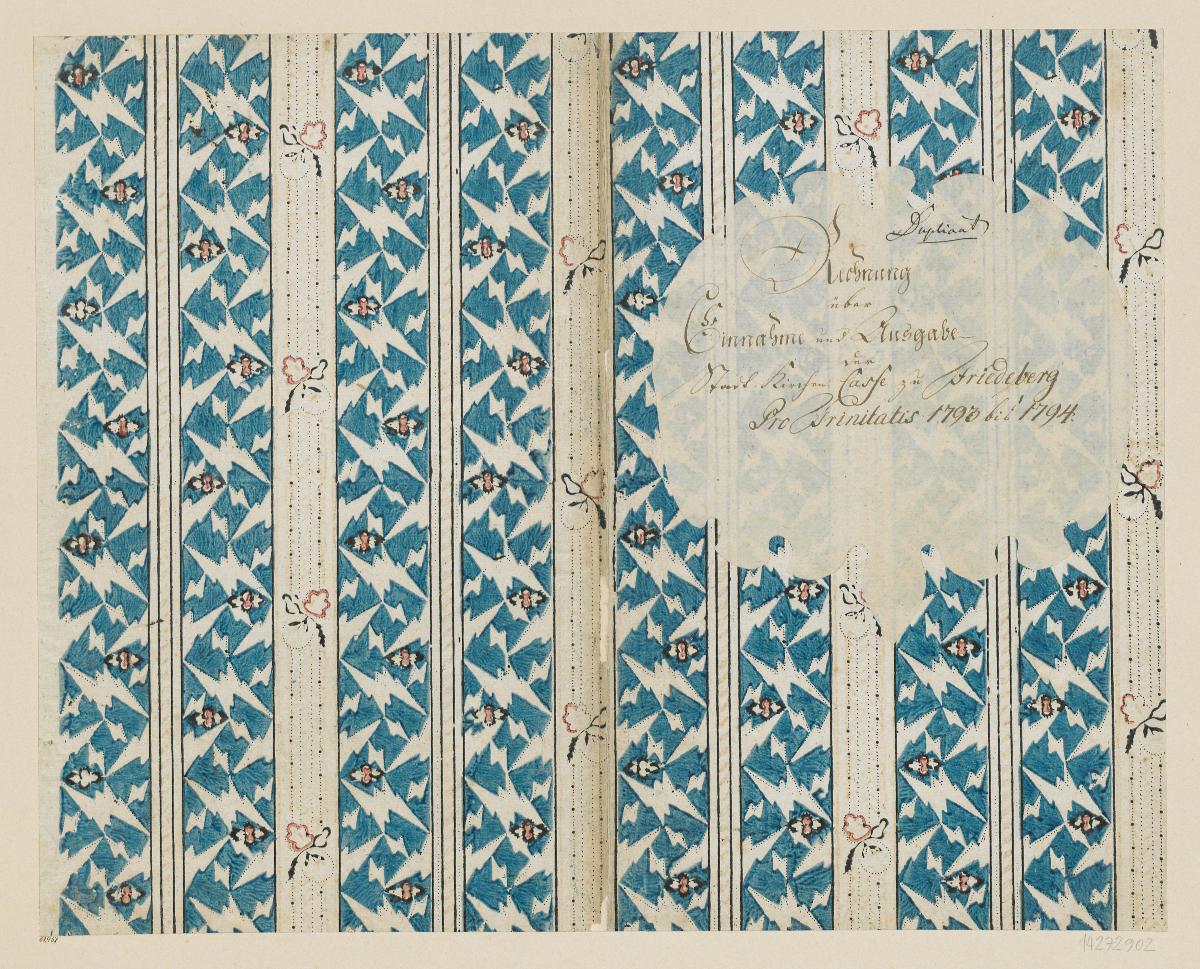 Duplicat
Rechnung
über
Einnahme und Ausgabe
der
Stadt Kirchen Casse zu Friedeberg
Pro Trinitatis 1793 bis 1794.
14272902